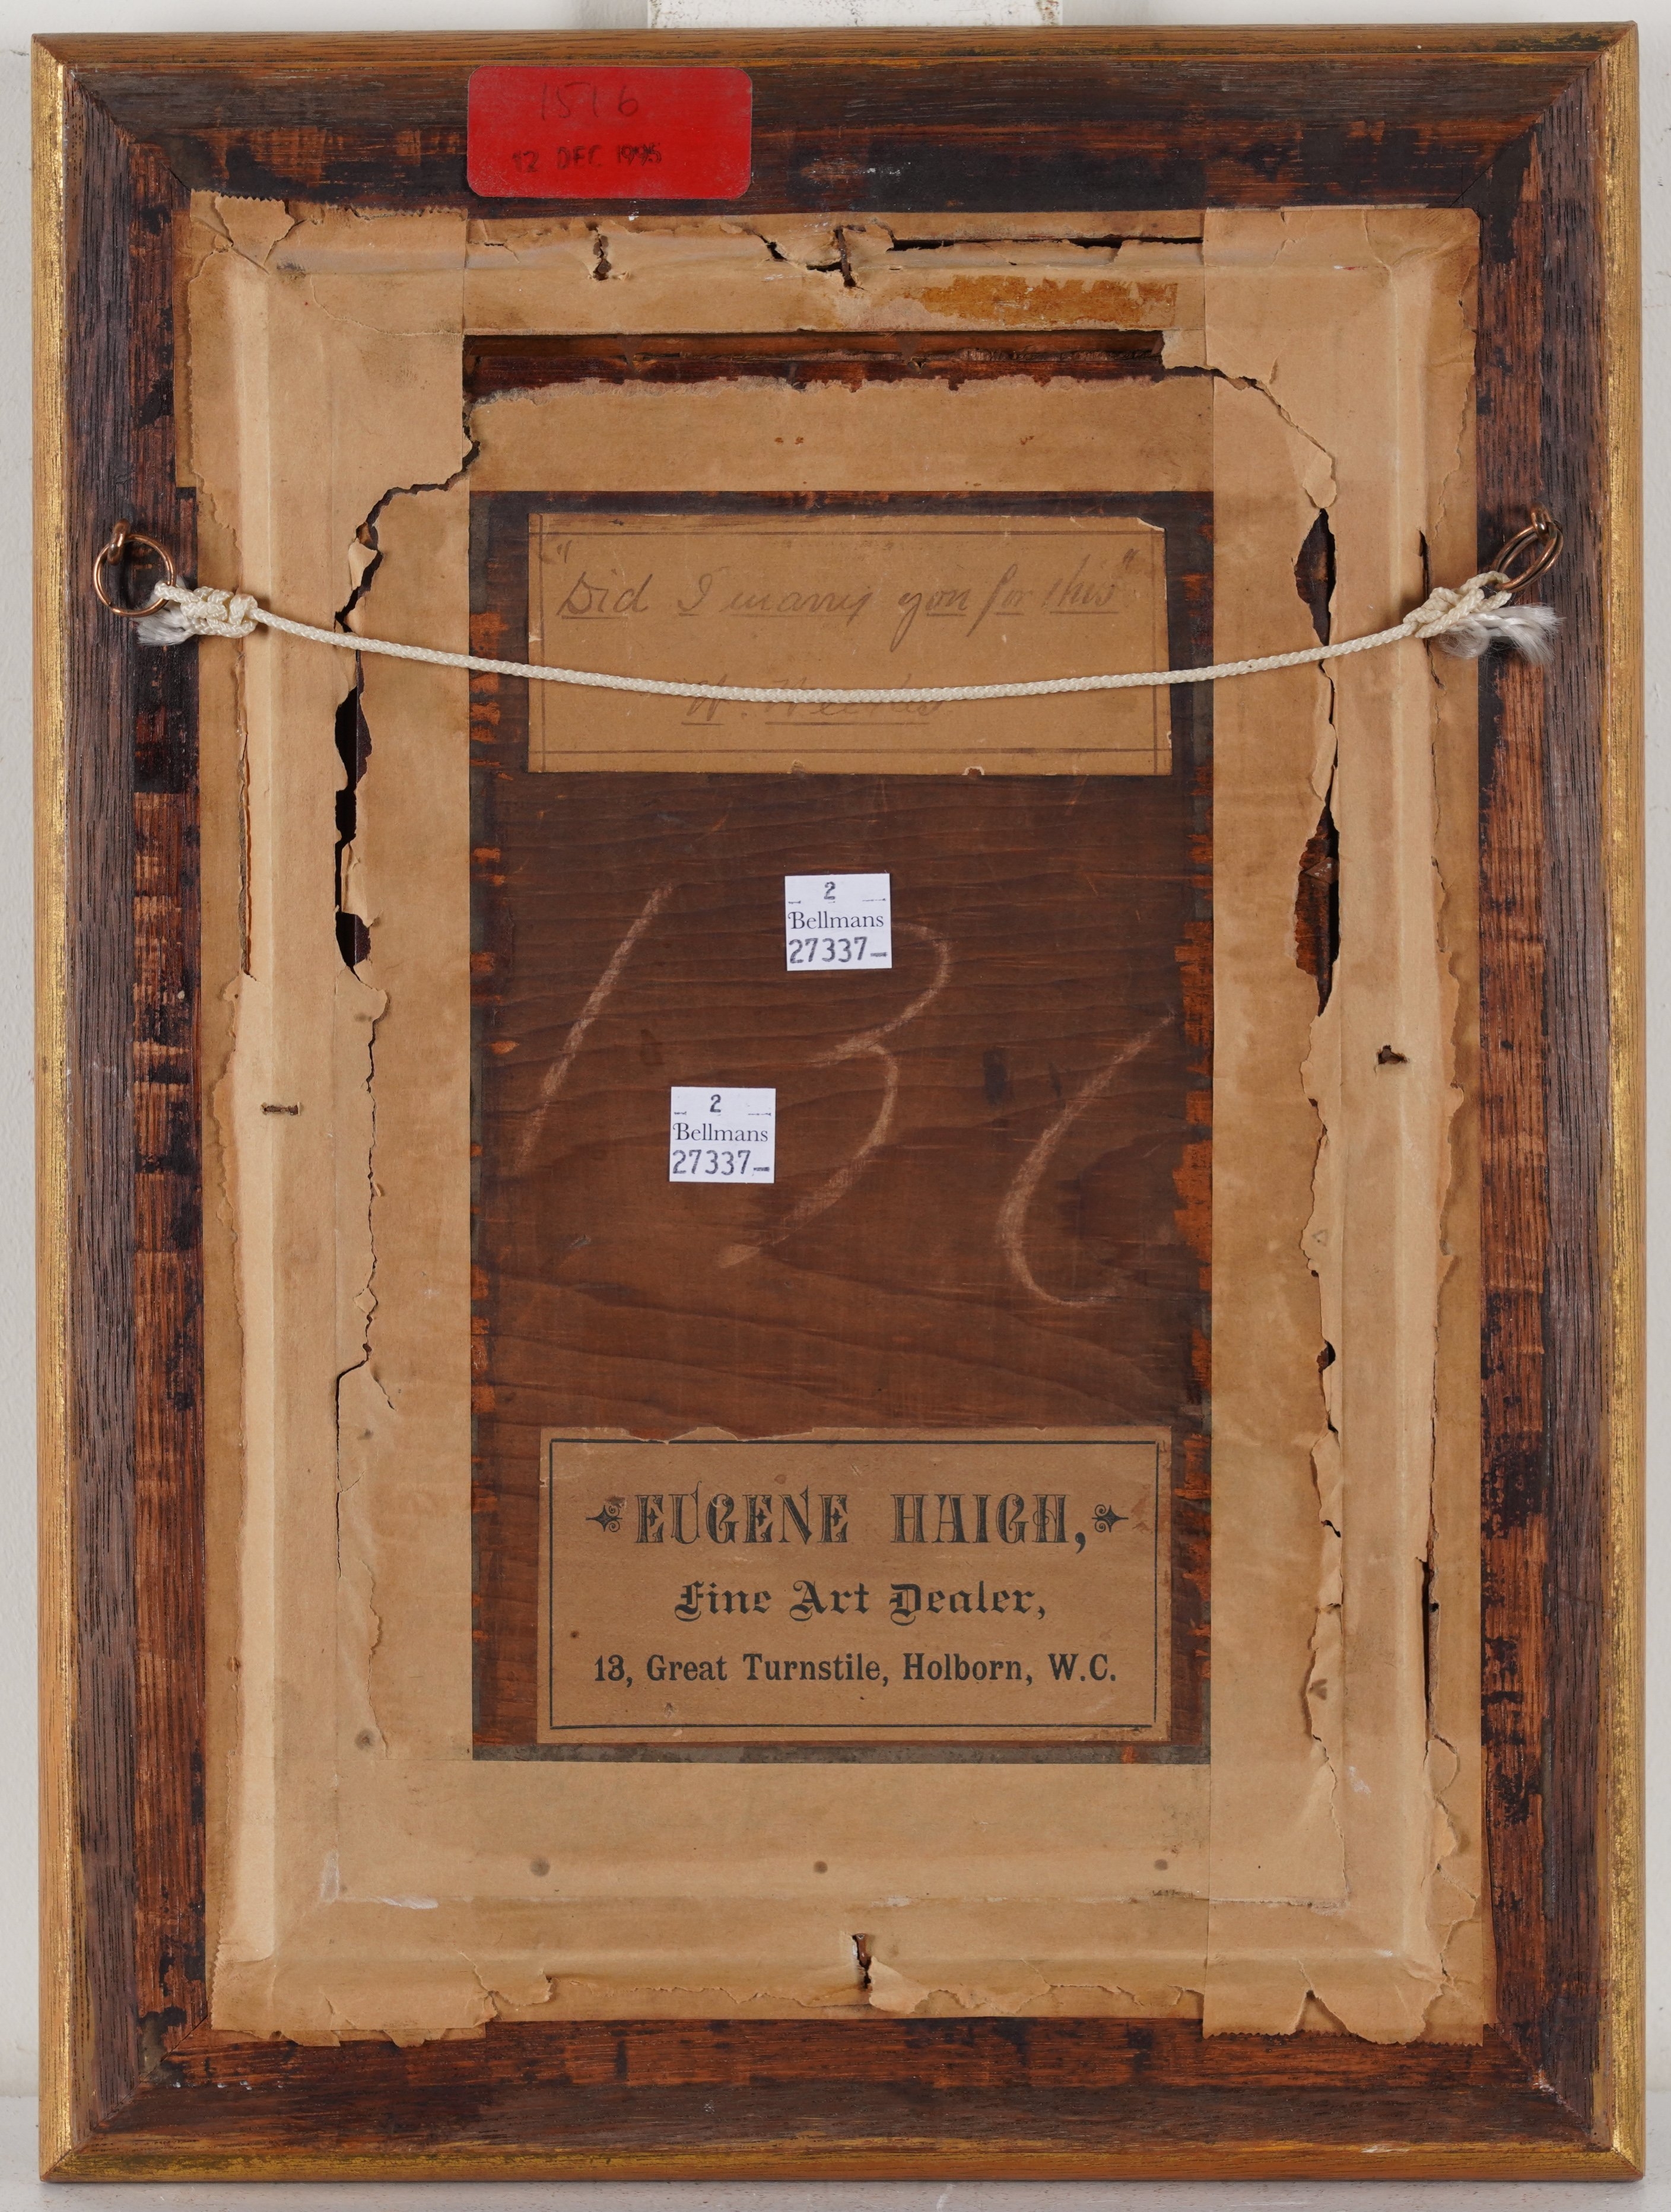 1516
12 DEC 1995
"Did I marry you for this"
W. Weekes
2
Bellmans
27337-
2
Bellmans
27337-
EUGENE HAIGH,
Fine Art Dealer,
13, Great Turnstile, Holborn, W.C.